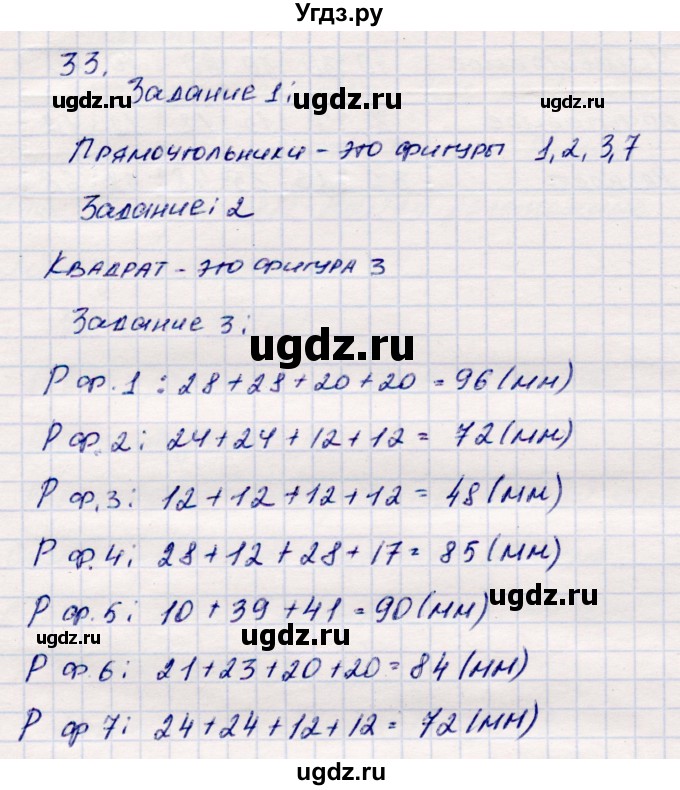 Угдз.ру
33.
Задание 1:
ugdz.ru ugdz.ru ugdz.ru
Прямоугольники - это фигуры 1, 2, 3, 7
Задание: 2
Квадрат - это фигура 3
Задание 3:
ugdz.ru
P ф.1 : 28+28+20+20 = 96 (мм)
P ф.2: 24+24+12+12 = 72 (мм)
P ф.3: 12+12+12+12 = 48 (мм)
P ф.4: 28+12+28+17 = 85 (мм)
P ф.5: 10+39+41 = 90 (мм)
ugdz.ru
ugdz.ru ugdz.ru
P ф.6: 21+23+20+20 = 84 (мм)
P ф 7: 24+24+12+12 = 72 (мм)
ugdz.ru